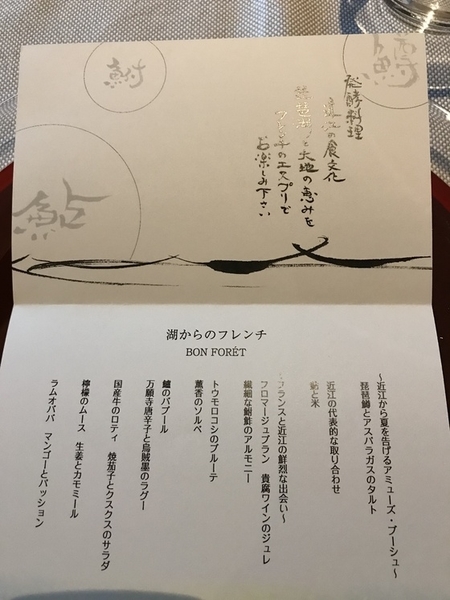 鱒
鮒
鮎
発酵料理
近江の食文化
琵琶湖と大地の恵みを
フレンチのエスプリで
お楽しみ下さい
湖からのフレンチ
BON FORÊT
～近江から夏を告げるアミューズ・ブーシュ～
琵琶鱒とアスパラガスのタルト
近江の代表的な取り合わせ
鮎と米
～フランスと近江の鮮烈な出会い～
フロマージュブラン　貴腐ワインのジュレ
繊細な鮒鮓のアルモニー
トウモロコシのブルーテ
薫香のソルベ
鱸のバプール
万願寺唐辛子と烏賊墨のラグー
国産牛のロティ　焼茄子とクスクスのサラダ
檸檬のムース　生姜とカモミール
ラムオババ　マンゴーとパッション